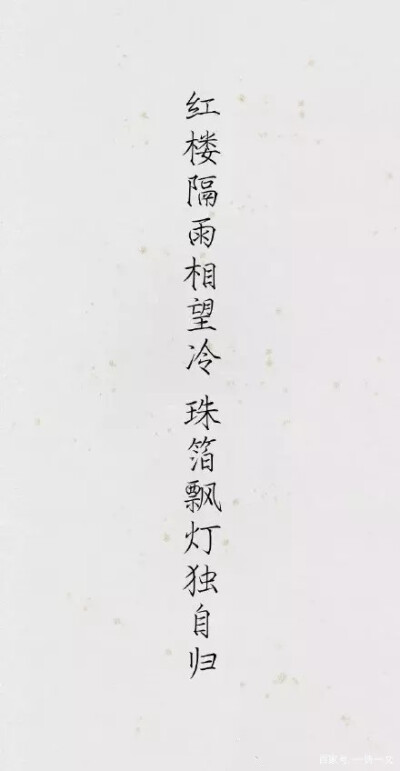 红楼隔雨相望冷 珠箔飘灯独自归